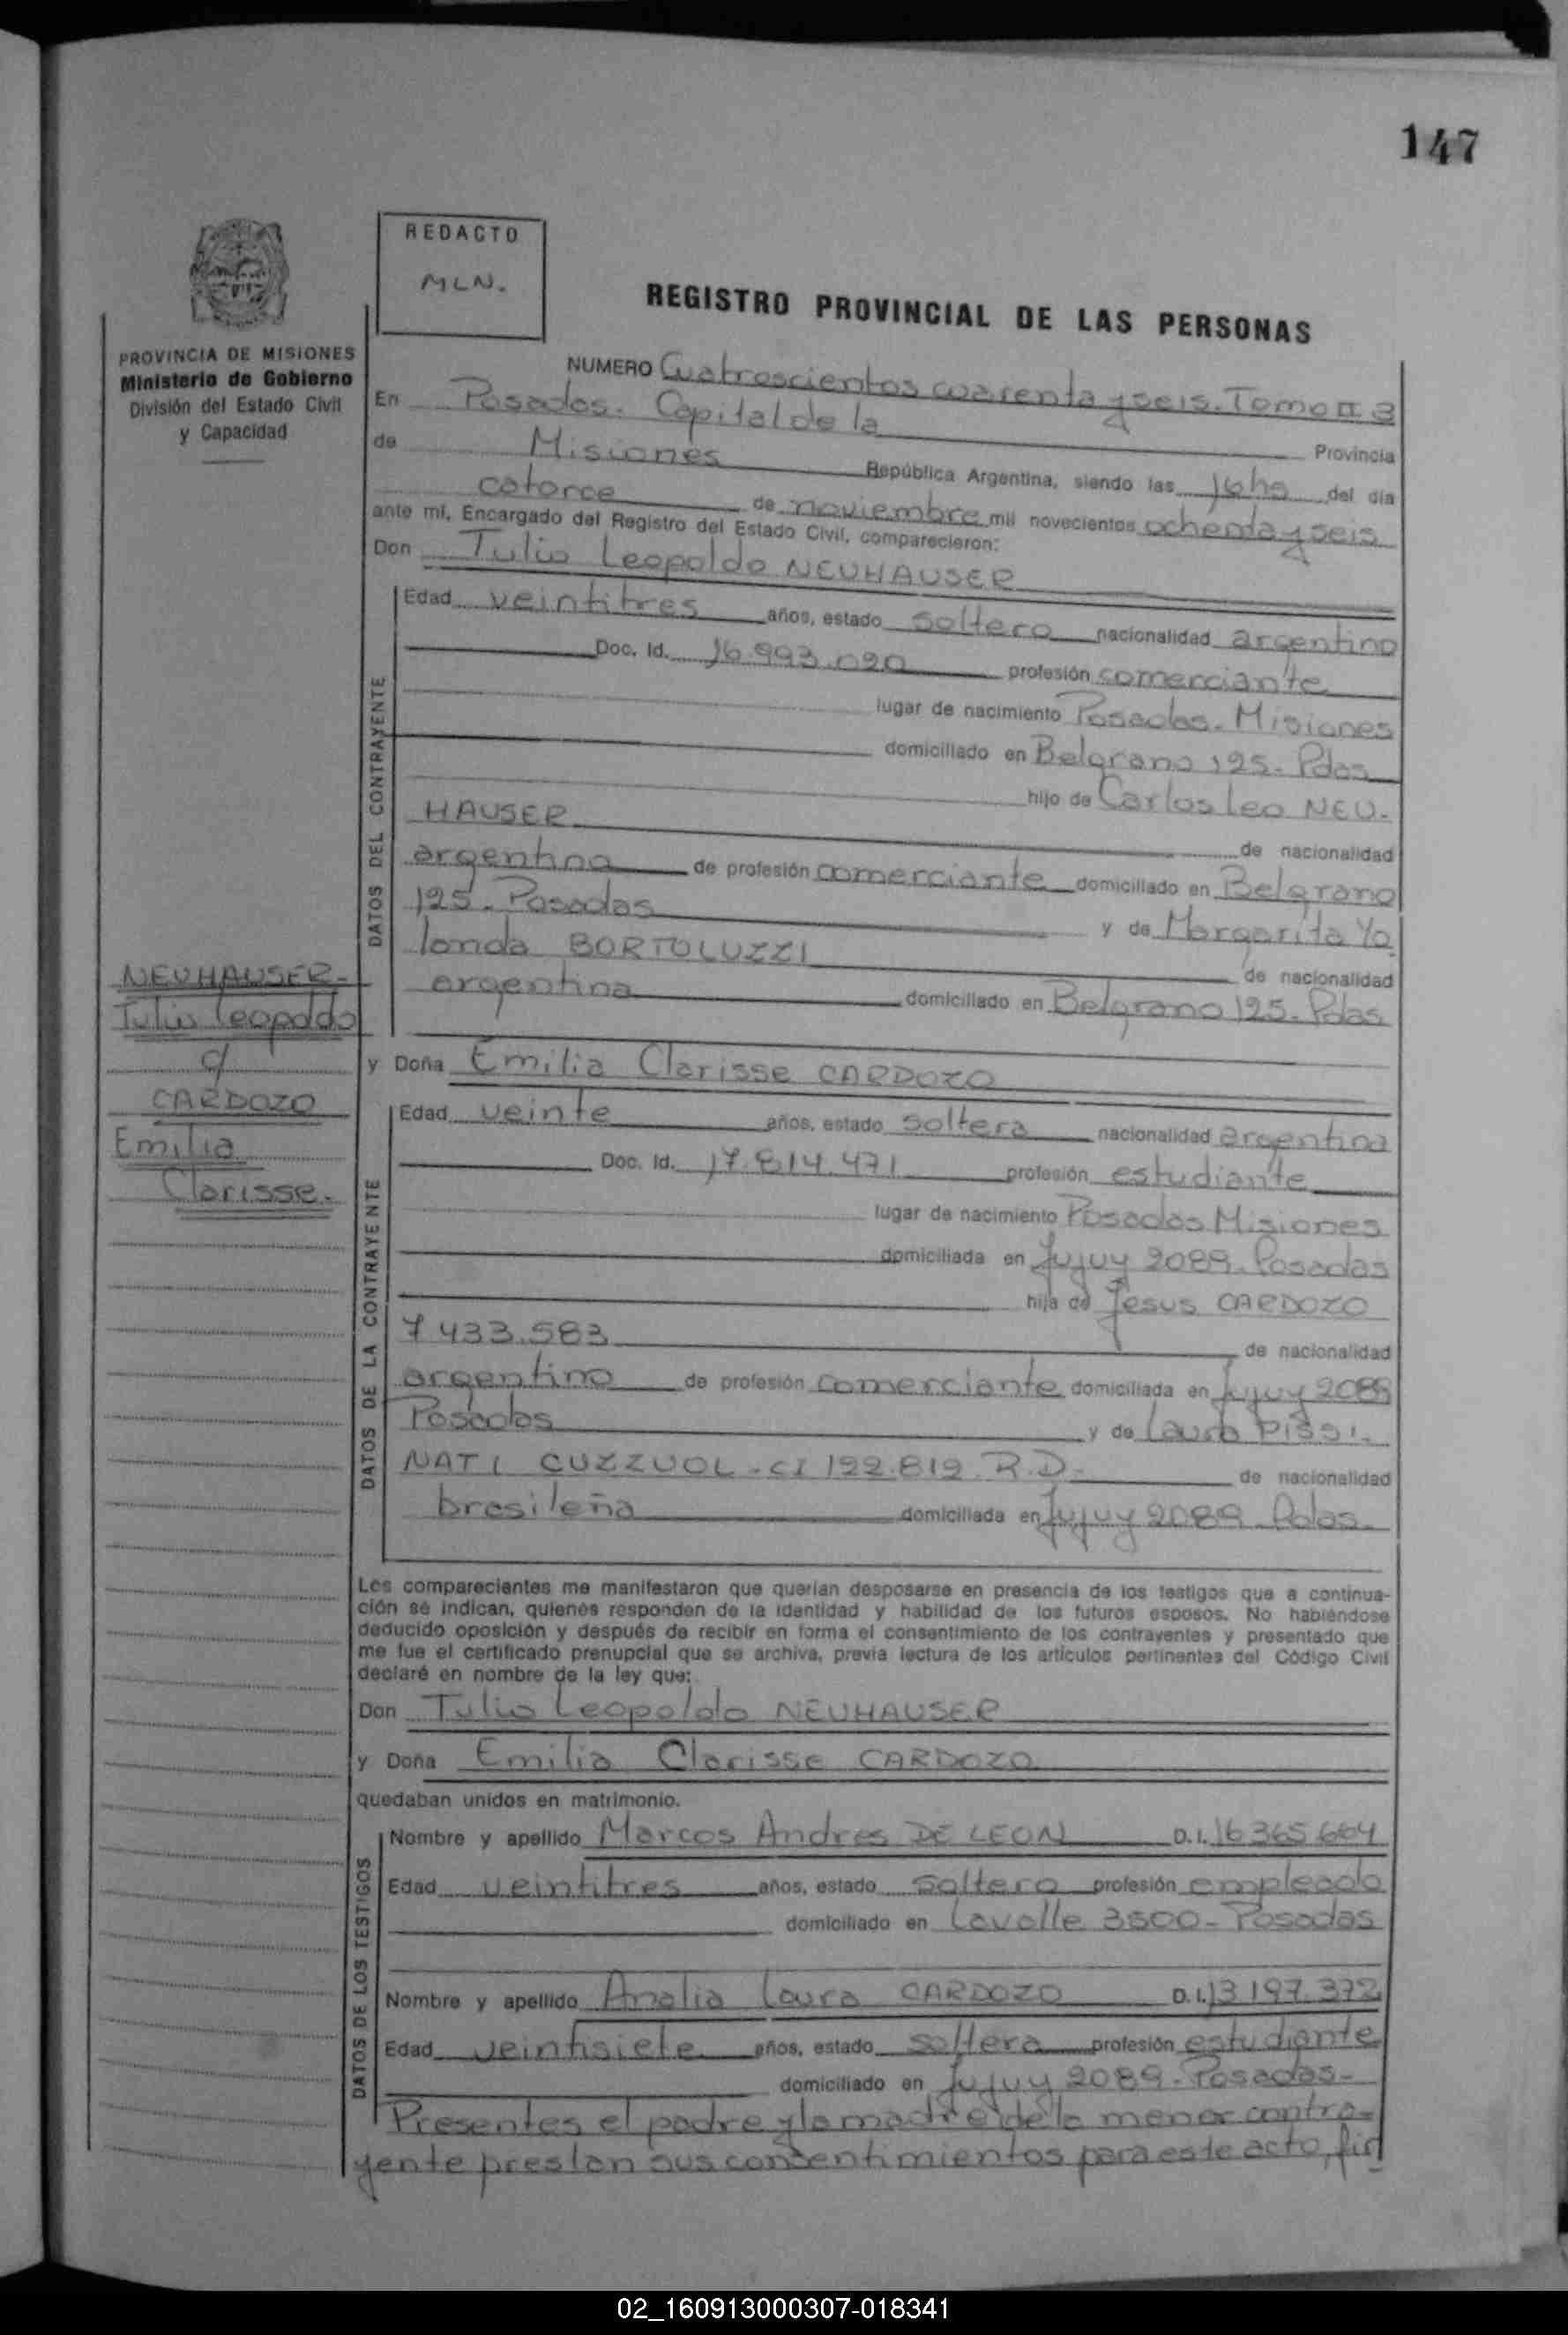 147
REDACTO
MLN.
REGISTRO PROVINCIAL DE LAS PERSONAS
PROVINCIA DE MISIONES
Ministerio de Gobierno
División del Estado Civil
y Capacidad
NUMERO Cuatroscientos cuarenta y seis. Tomo II 3
En Posadas. Capital de la Provincia
de Misiones República Argentina, siendo las 16hs del día
catorce de noviembre mil novecientos ochenta y seis
ante mí, Encargado del Registro del Estado Civil, comparecieron:
Don Tulio Leopoldo NEUHAUSER
DATOS DEL CONTRAYENTE
Edad veintitres años, estado soltero nacionalidad argentino
Doc. Id. 16.993.020 profesión comerciante
lugar de nacimiento Posadas. Misiones
domiciliado en Belgrano 125. Pdas
hijo de Carlos Leo NEU-
HAUSER de nacionalidad
argentina de profesión comerciante domiciliado en Belgrano
125. Posadas y de Margarita Yo
landa BORTOLUZZI de nacionalidad
argentina domiciliado en Belgrano 125. Pdas
NEUHAUSER-
Tulio Leopoldo
c/
CARDOZO
Emilia
Clarisse.
y Doña Emilia Clarisse CARDOZO
DATOS DE LA CONTRAYENTE
Edad veinte años, estado soltera nacionalidad argentina
Doc. Id. 17.814.471 profesión estudiante
lugar de nacimiento Posadas Misiones
domiciliada en Jujuy 2089. Posadas
hija de Jesus CARDOZO
7433.583 de nacionalidad
argentino de profesión comerciante domiciliada en Jujuy 2089
Posadas y de Laura PISSI-
NATI CUZZUOL. CI 122.819. R.D- de nacionalidad
brasileña domiciliada en Jujuy 2089 Pdas.
Los comparecientes me manifestaron que querían desposarse en presencia de los testigos que a continua-
ción se indican, quienes responden de la identidad y habilidad de los futuros esposos. No habiéndose
deducido oposición y después de recibir en forma el consentimiento de los contrayentes y presentado que
me fue el certificado prenupcial que se archiva, previa lectura de los artículos pertinentes del Código Civil
declaré en nombre de la ley que:
Don Tulio Leopoldo NEUHAUSER
y Doña Emilia Clarisse CARDOZO
quedaban unidos en matrimonio.
DATOS DE LOS TESTIGOS
Nombre y apellido Marcos Andres DE LEON D.I. 16365664
Edad veintitres años, estado soltero profesión empleado
domiciliado en Lavalle 3500- Posadas
Nombre y apellido Analia Laura CARDOZO D.I. 13197.372
Edad veintisiete años, estado soltera profesión estudiante
domiciliado en Jujuy 2089. Posadas-
Presentes el padre y la madre de la menor contra-
yente prestan sus consentimientos para este acto, fir
02_160913000307-018341